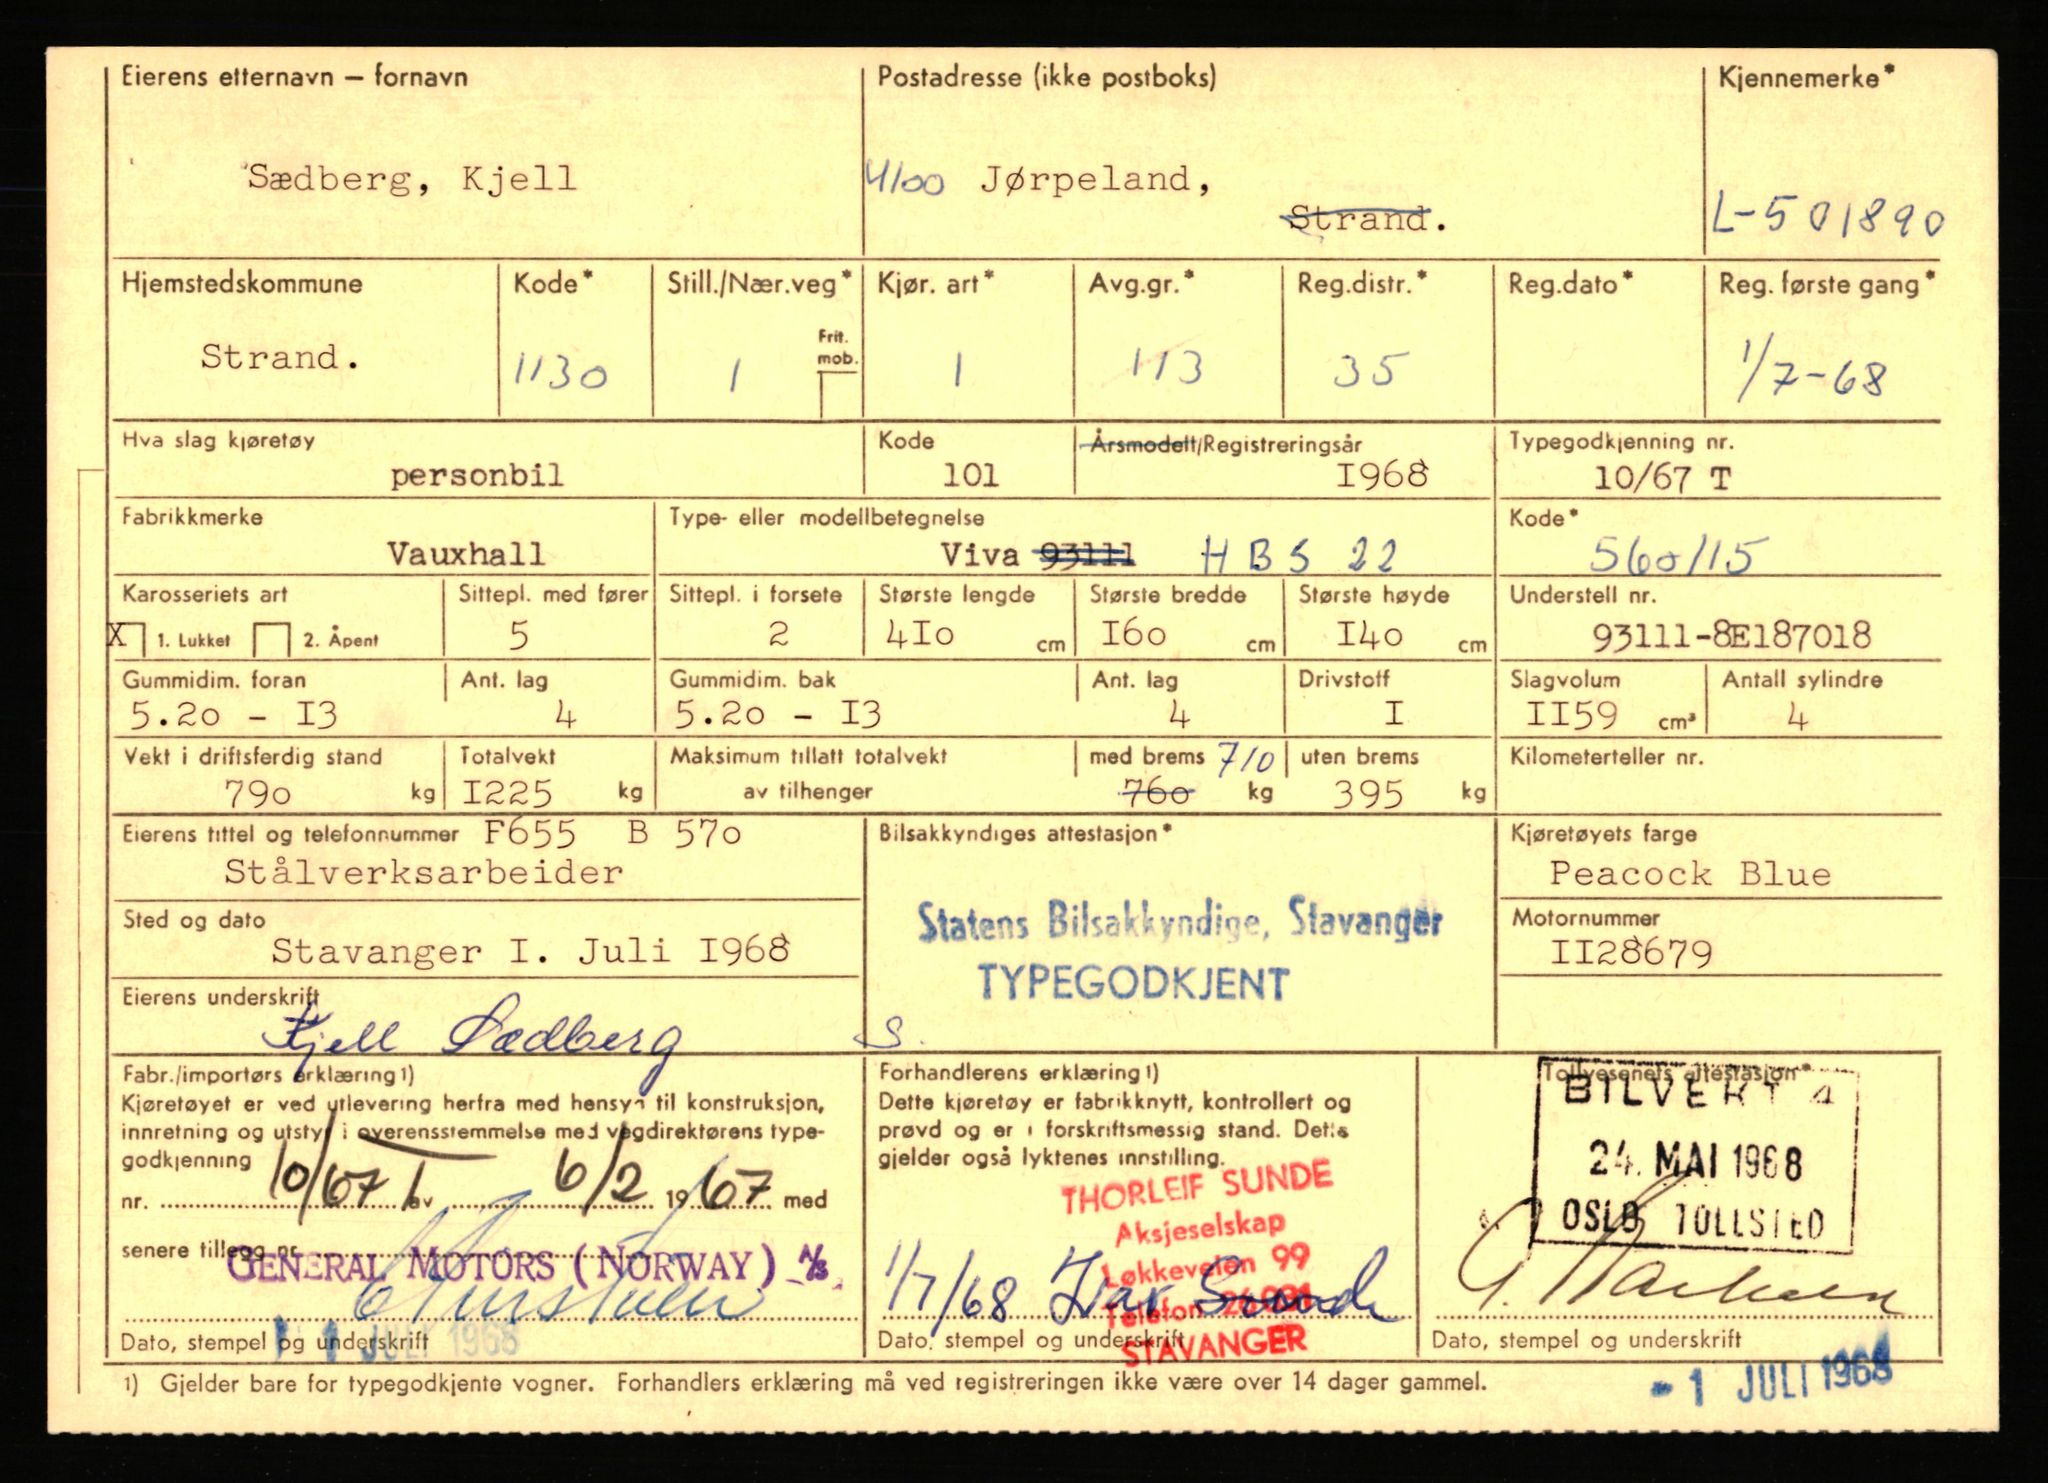 Eierens etternavn – fornavn
Postadresse (ikke postboks)
Kjennemerke*
Sædberg, Kjell
4100 Jørpeland,
Strand.
L-501890
Hjemstedskommune
Kode*
Still./Nær.veg*
Kjør. art*
Avg.gr.*
Reg.distr.*
Reg.dato*
Reg. første gang*
Frit.
mob.
Strand.
1130
1
1
113
35
1/7-68
Hva slag kjøretøy
Kode
Årsmodell/Registreringsår
Typegodkjenning nr.
personbil
101
I968
10/67 T
Fabrikkmerke
Type- eller modellbetegnelse
Kode*
Vauxhall
Viva 93111 HBS 22
560115
Karosseriets art
Sittepl. med fører
Sittepl. i forsete
Største lengde
Største bredde
Største høyde
Understell nr.
X 1. Lukket 2. Åpent
5
2
4Io cm
I6o cm
I4o cm
93111-8E187018
Gummidim. foran
Ant. lag
Gummidim. bak
Ant. lag
Drivstoff
Slagvolum
Antall sylindre
5.2o - I3
4
5.2o - I3
4
I
II59 cm³
4
Vekt i driftsferdig stand
Totalvekt
Maksimum tillatt totalvekt
med brems 710
uten brems
Kilometerteller nr.
79o kg
I225 kg
av tilhenger
76o kg
395 kg
Eierens tittel og telefonnummer F655 B 57o
Bilsakkyndiges attestasjon*
Kjøretøyets farge
Stålverksarbeider
Peacock Blue
Sted og dato
Statens Bilsakkyndige, Stavanger
Motornummer
Stavanger I. Juli I968
TYPEGODKJENT
II28679
Eierens underskrift
Kjell Sædberg
S.
Fabr./importørs erklæring 1)
Kjøretøyet er ved utlevering herfra med hensyn til konstruksjon,
innretning og utstyr i overensstemmelse med vegdirektørens type-
godkjenning
nr. 10/67 T av 6/2 1967 med
senere tillegg nr.
GENERAL MOTORS (NORWAY) A/S
Dato, stempel og underskrift
1 JULI 1968
Forhandlerens erklæring 1)
Dette kjøretøy er fabrikknytt, kontrollert og
prøvd og er i forskriftsmessig stand. Dette
gjelder også lyktenes innstilling.
THORLEIF SUNDE
Aksjeselskap
Løkkeveien 99
1/7/68 Ivar Sunde
Telefon
STAVANGER
Dato, stempel og underskrift
Tollvesenets attestasjon*
BILVEKT 4
24. MAI 1968
OSLO TOLLSTED
Dato, stempel og underskrift
- 1 JULI 1968
1) Gjelder bare for typegodkjente vogner. Forhandlers erklæring må ved registreringen ikke være over 14 dager gammel.